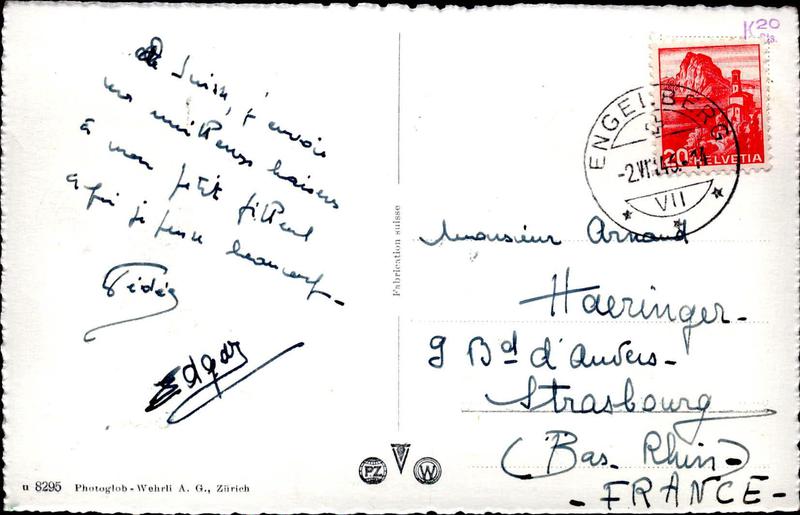 de Suisse, j'envoie
nos meilleurs baisers
à mon petit filleul
à qui je pense beaucoup -
Dédée
Edgar
K 20
Cts.
ENGELBERG
VII
20 HELVETIA
Fabrication suisse
Monsieur Arnaud
Haeringer -
9 Bd d'Anvers -
Strasbourg
(Bas. Rhin)
- FRANCE -
PZ W
u 8295 Photoglob - Wehrli A. G., Zürich